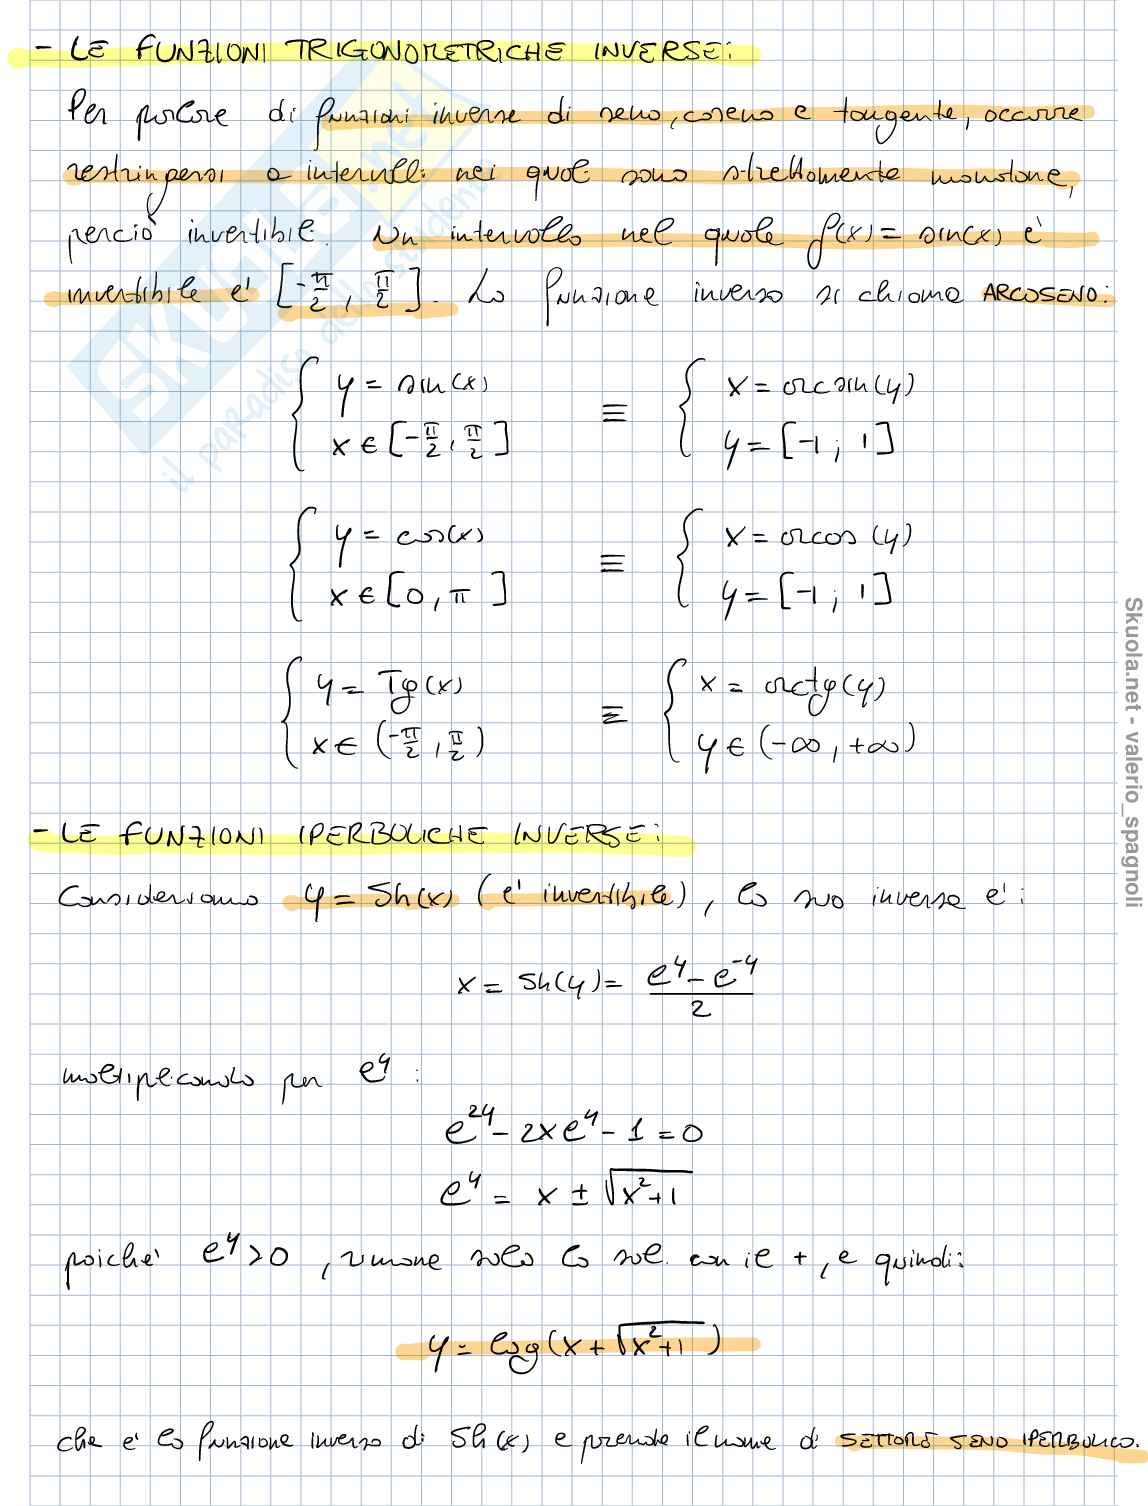 - LE FUNZIONI TRIGONOMETRICHE INVERSE:
Per parlare di funzioni inverse di seno, coseno e tangente, occorre
restringersi a intervalli nei quali sono strettamente monotone,
perciò invertibili. Un intervallo nel quale f(x) = sin(x) è
invertibile è [-π/2, π/2]. La funzione inversa si chiama ARCOSENO:
{ y = sin(x) ≡ { x = arcsin(y)
x ∈ [-π/2, π/2] y = [-1; 1]
{ y = cos(x) ≡ { x = arcos(y)
x ∈ [0, π] y = [-1; 1]
{ y = Tg(x) ≡ { x = arctg(y)
x ∈ (-π/2, π/2) y ∈ (-∞, +∞)
- LE FUNZIONI IPERBOLICHE INVERSE:
Consideriamo y = Sh(x) (è invertibile), la sua inversa è:
x = Sh(y) = (e^y - e^-y)/2
moltiplicando per e^y:
e^2y - 2xe^y - 1 = 0
e^y = x ± √(x²+1)
poiché e^y > 0, rimane solo la sol. con il +, e quindi:
y = log(x + √(x²+1))
che è la funzione inversa di Sh(x) e prende il nome di SETTORE SENO IPERBOLICO.
SKUOLA.net
il paradiso dello studente
Skuola.net - valerio_spagnoli